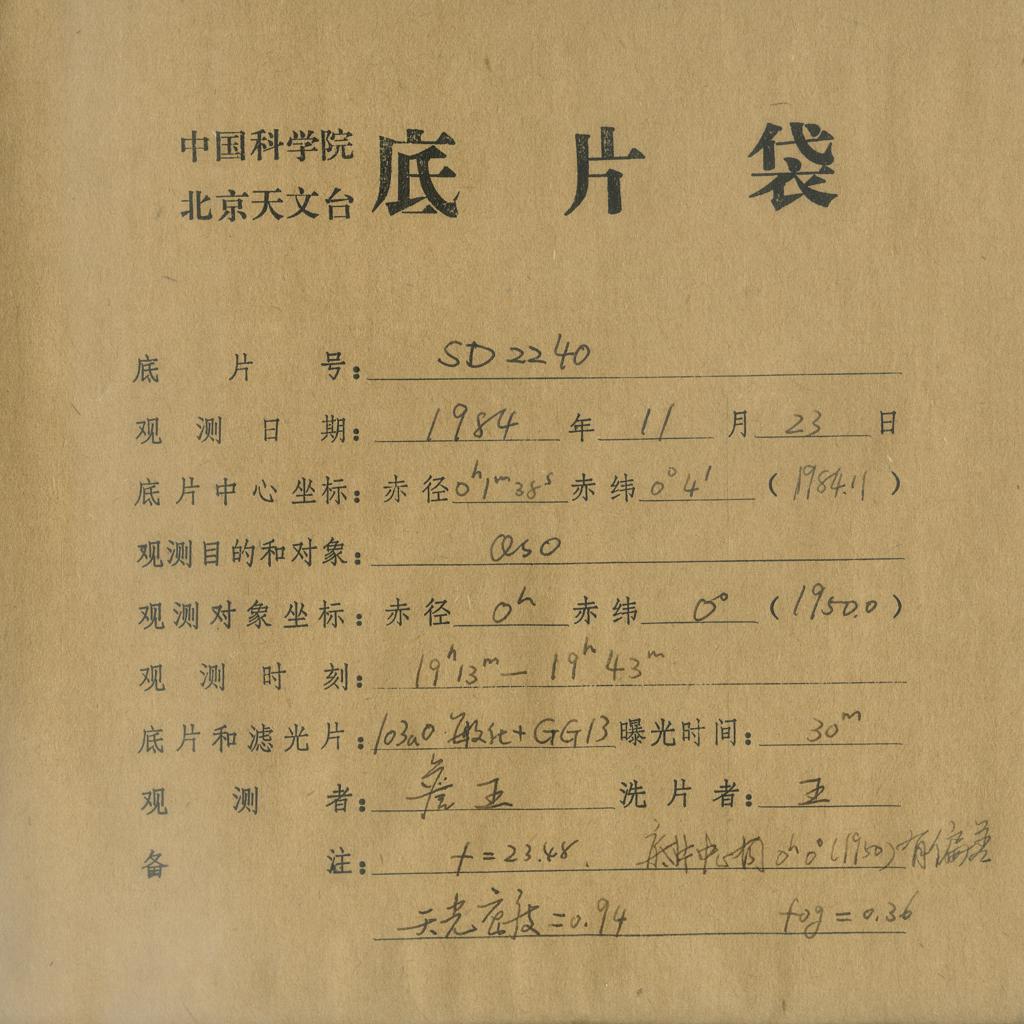 中国科学院
北京天文台 底片袋
底片号：SD2240
观测日期：1984年11月23日
底片中心坐标：赤径0ʰ1ᵐ38ˢ赤纬0°4′（1984.11）
观测目的和对象：QSO
观测对象坐标：赤径0ʰ赤纬0°（1950.0）
观测时刻：19ʰ13ᵐ—19ʰ43ᵐ
底片和滤光片：103aO 敏化+GG13曝光时间：30ᵐ
观测者：詹 王 洗片者：王
备注：f=23.48. 底片中心 0ʰ0°(1950)有偏差
天光密度=0.94 fog=0.36